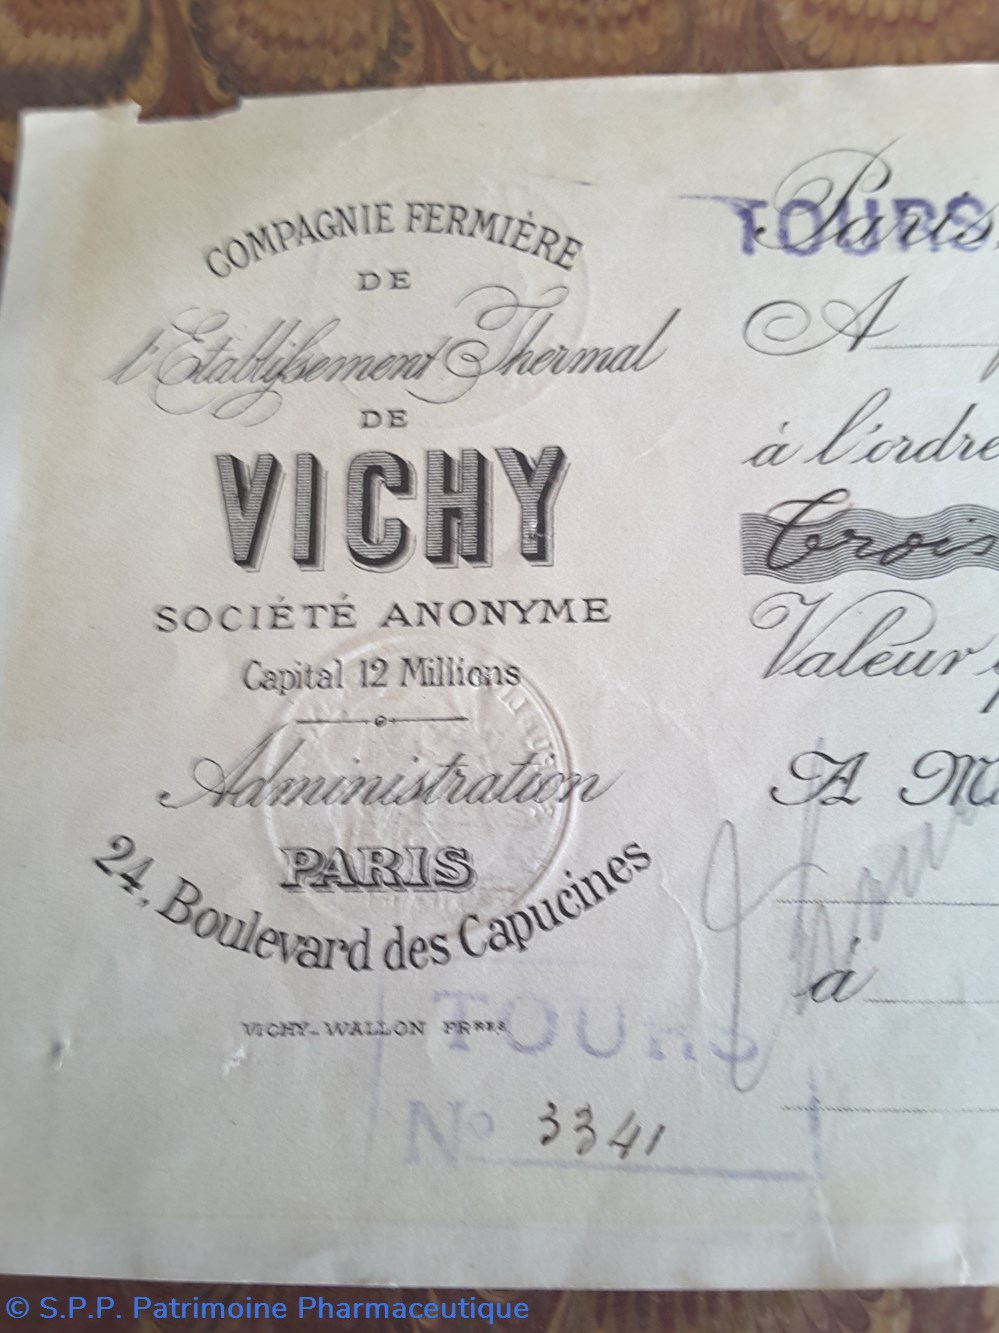 COMPAGNIE FERMIÈRE
DE
l'Etablissement Thermal
DE
VICHY
SOCIÉTÉ ANONYME
Capital 12 Millions
Administration
PARIS
24, Boulevard des Capucines
VICHY_WALLON FRÈRES
TOURS
No 3341
Paris,
TOURS
A
à l'ordre
Trois
Valeur
A M
à
© S.P.P. Patrimoine Pharmaceutique